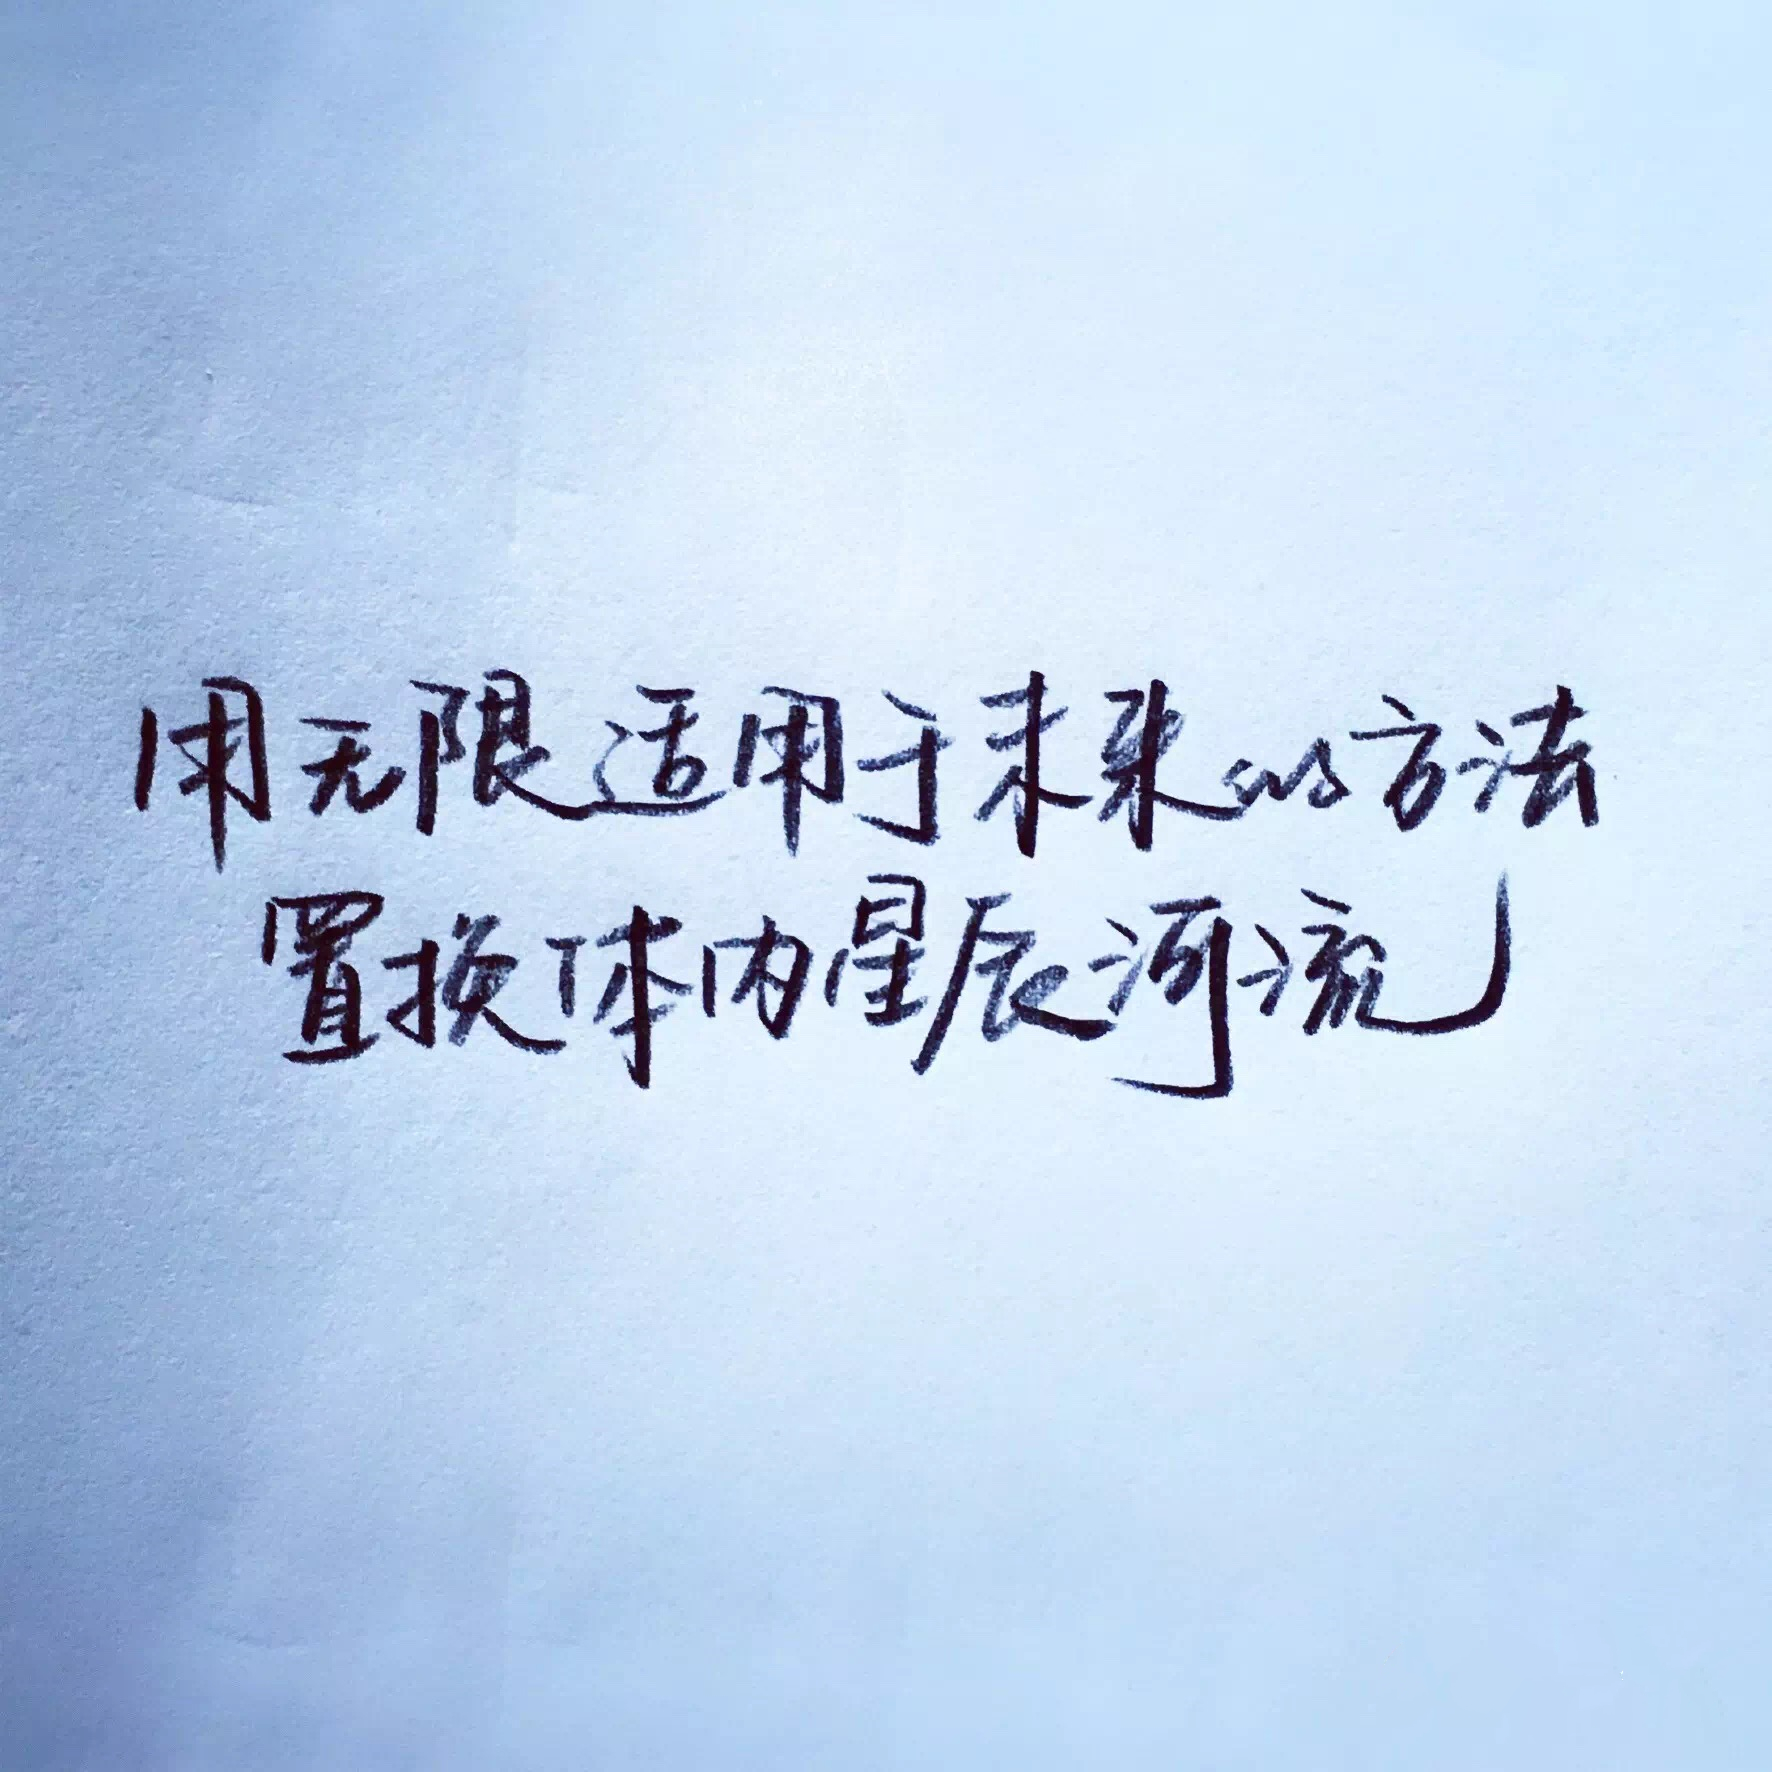 用无限适用于未来的方法
置换体内星辰河流